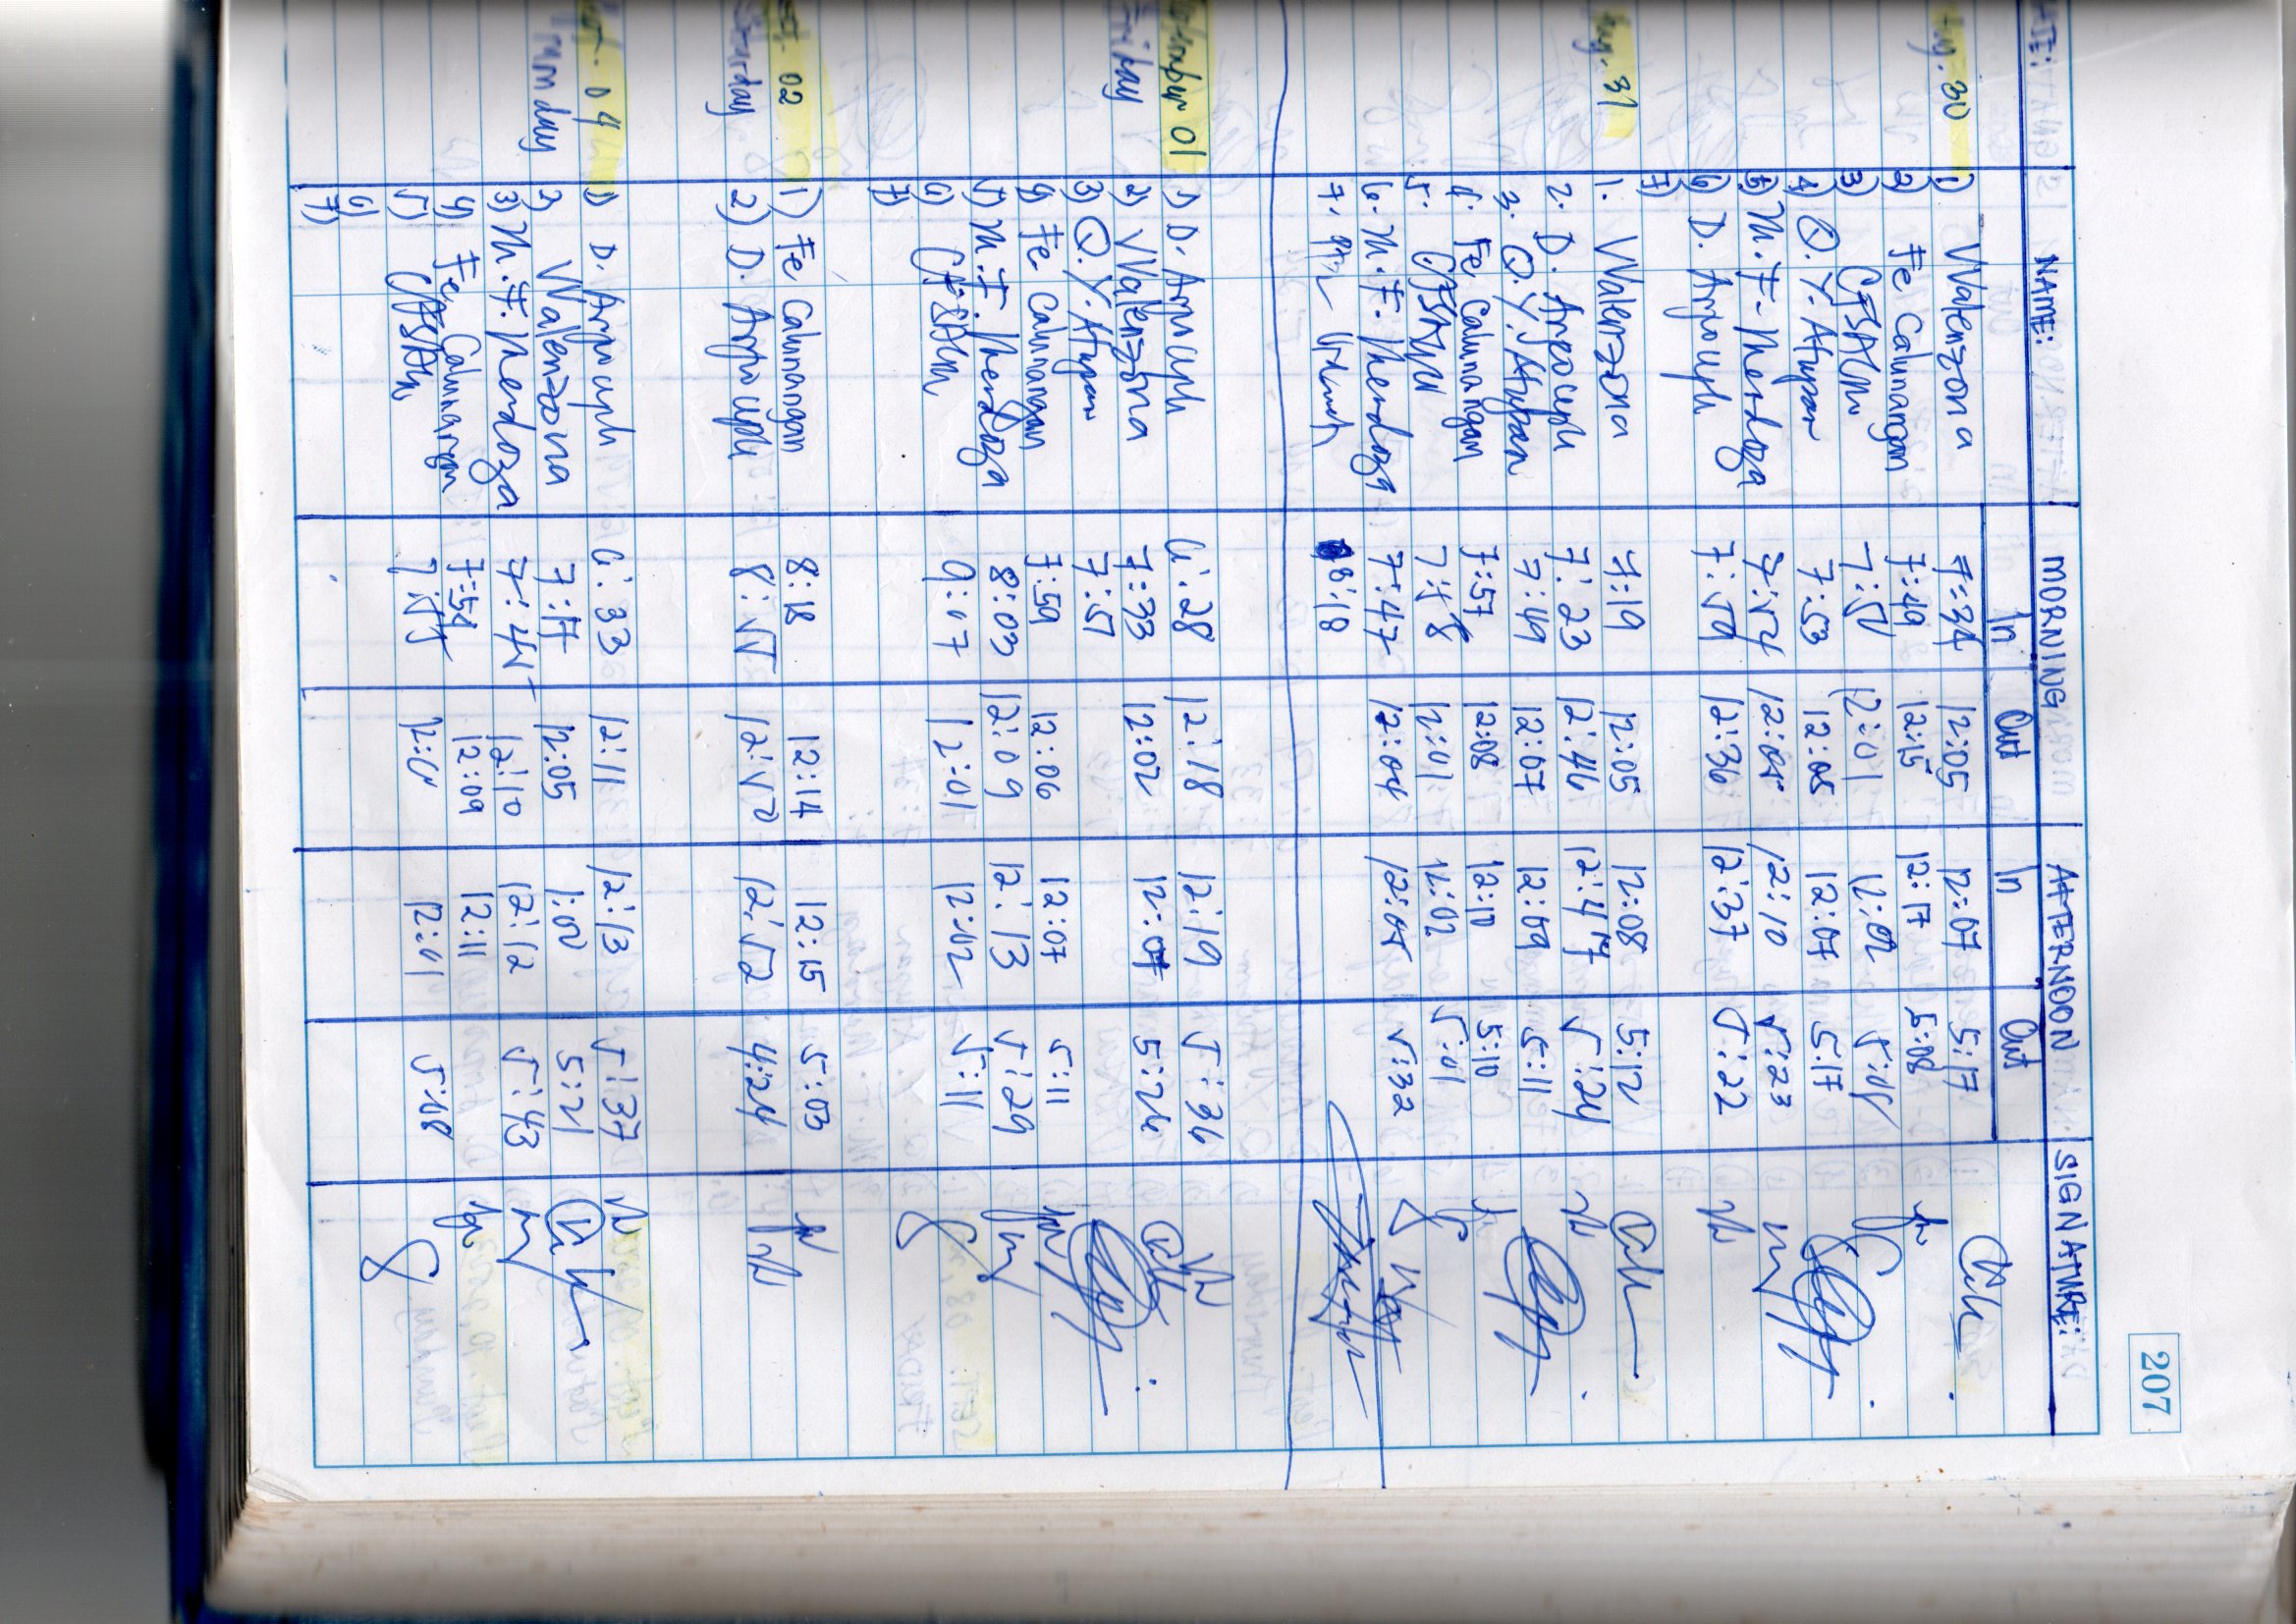 207
DATE: NAME: MORNING AFTERNOON SIGNATURE:
In Out In Out
Aug. 30 1) Valenzona 7:34 12:05 12:07 5:17
2) Fe Calunangan 7:49 12:15 12:17 5:08
3) 12:01
4) O.Y. Atupan 7:53 12:05 12:07 5:17
5) M.F. Mendoza 7:54 12:05 12:10 5:23
6) D. 7:59 12:36 12:37 5:22
7)
Aug. 31 1. Valenzona 7:19 12:05 12:08 5:12
2. D. 7:23 12:46 12:47 5:24
3. O.Y. Atupan 7:49 12:07 12:09 5:11
4. Fe Calunangan 7:57 12:08 12:10 5:10
5. 7:58 12:01 12:02 5:01
6. M.F. Mendoza 7:47 12:04 12:05 5:32
7. 8:18
September 01 1) D. 6:28 12:18 12:19 5:36
Friday 2) Valenzona 7:33 12:02 12:07 5:26
3) O.Y. Atupan 7:57
4) Fe Calunangan 7:59 12:06 12:07 5:11
5) M.F. Mendoza 8:03 12:09 12:13 5:29
6) 9:07 12:01 12:02 5:11
7)
Sept. 02 1) Fe Calunangan 8:18 12:14 12:15 5:03
Saturday 2) D. 8:55 12:52 12:52 4:24
Sept. 04 1) D. 6:33 12:11 12:13 5:37
Monday 2) Valenzona 7:17 12:05 1:00 5:21
3) M.F. Mendoza 7:45 12:10 12:12 5:43
4) Fe Calunangan 7:54 12:09 12:11
5) 7:55 12:01 5:08
6)
7)